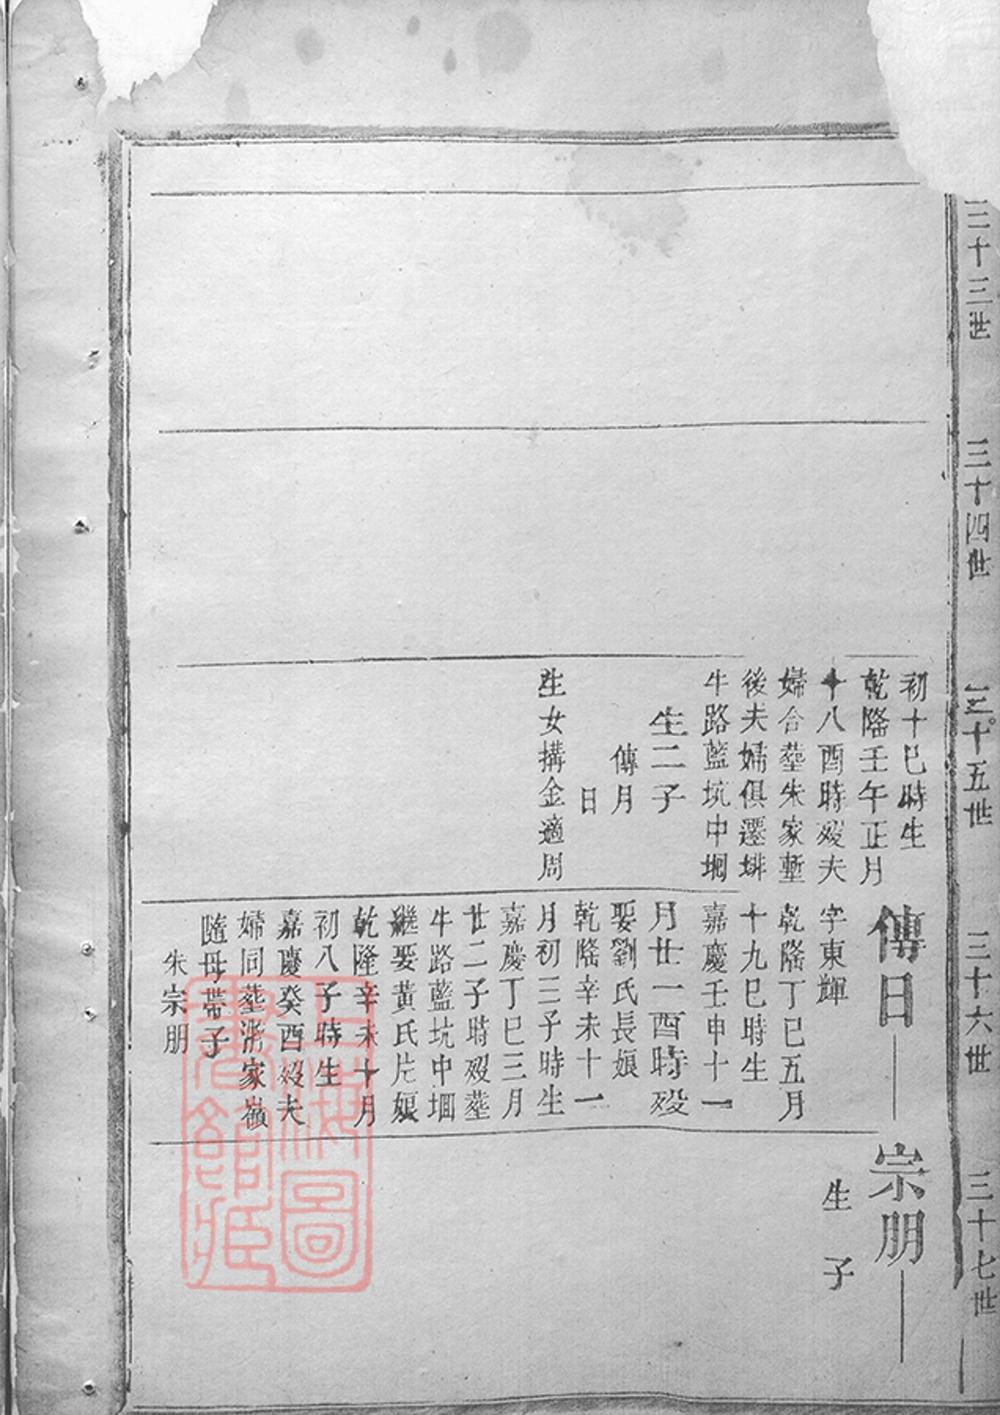 三十三世
三十四世
三十五世
三十六世
三十七世
初十巳時生
乾隆壬午正月
十八酉時歿夫
婦合塟朱家塹
後夫婦俱遷塀
牛路藍坑中堌
生二子
傳月
日
生女搆金適周
傳日
字東輝
乾隆丁巳五月
十九巳時生
嘉慶壬申十一
月廿一酉時歿
娶劉氏長娘
乾隆辛未十一
月初三子時生
嘉慶丁巳三月
廿二子時歿塟
牛路藍坑中堌
繼娶黃氏片娘
乾隆辛未十月
初八子時生
嘉慶癸酉歿夫
婦同塟家嶺
隨母帶子
朱宗朋
宗朋
生 子
上海圖
書館藏